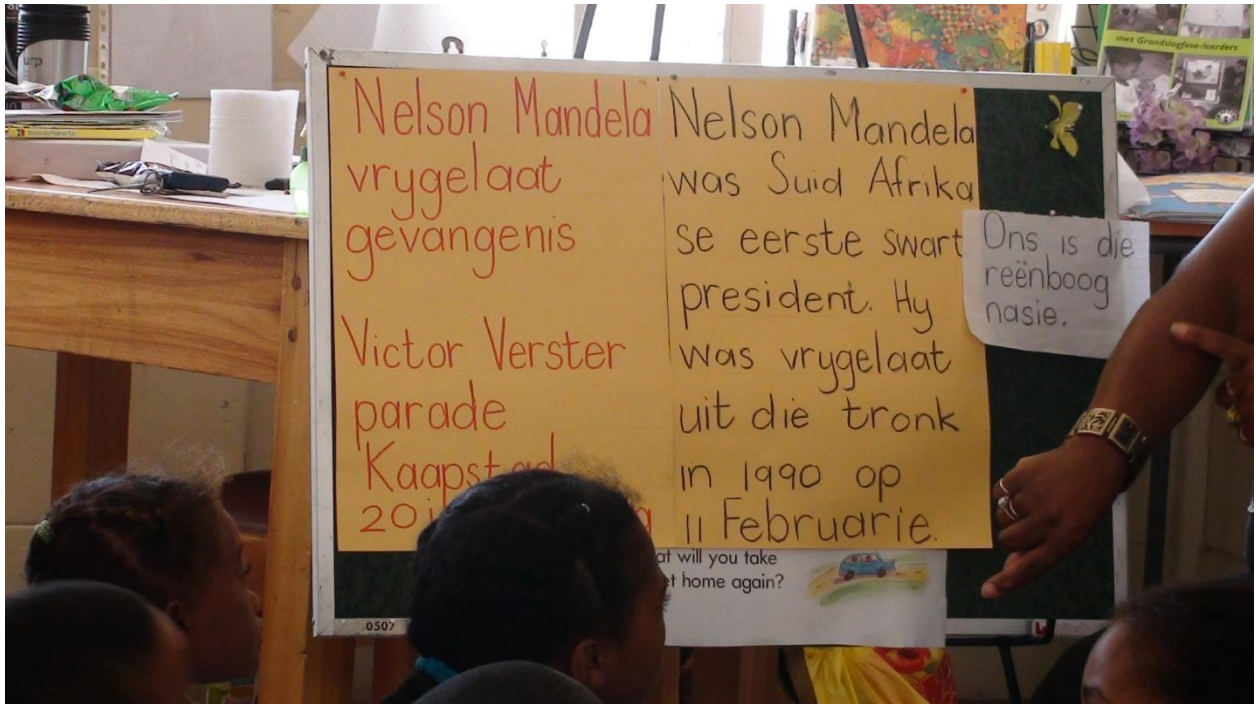 Nelson Mandela
vrygelaat
gevangenis
Victor Verster
parade
Kaapstad
20
Nelson Mandela
was Suid Afrika
se eerste swart
president. Hy
was vrygelaat
uit die tronk
in 1990 op
11 Februarie.
Ons is die
reënboog
nasie.
will you take
home again?
0507
met Grondslagfase-leerders